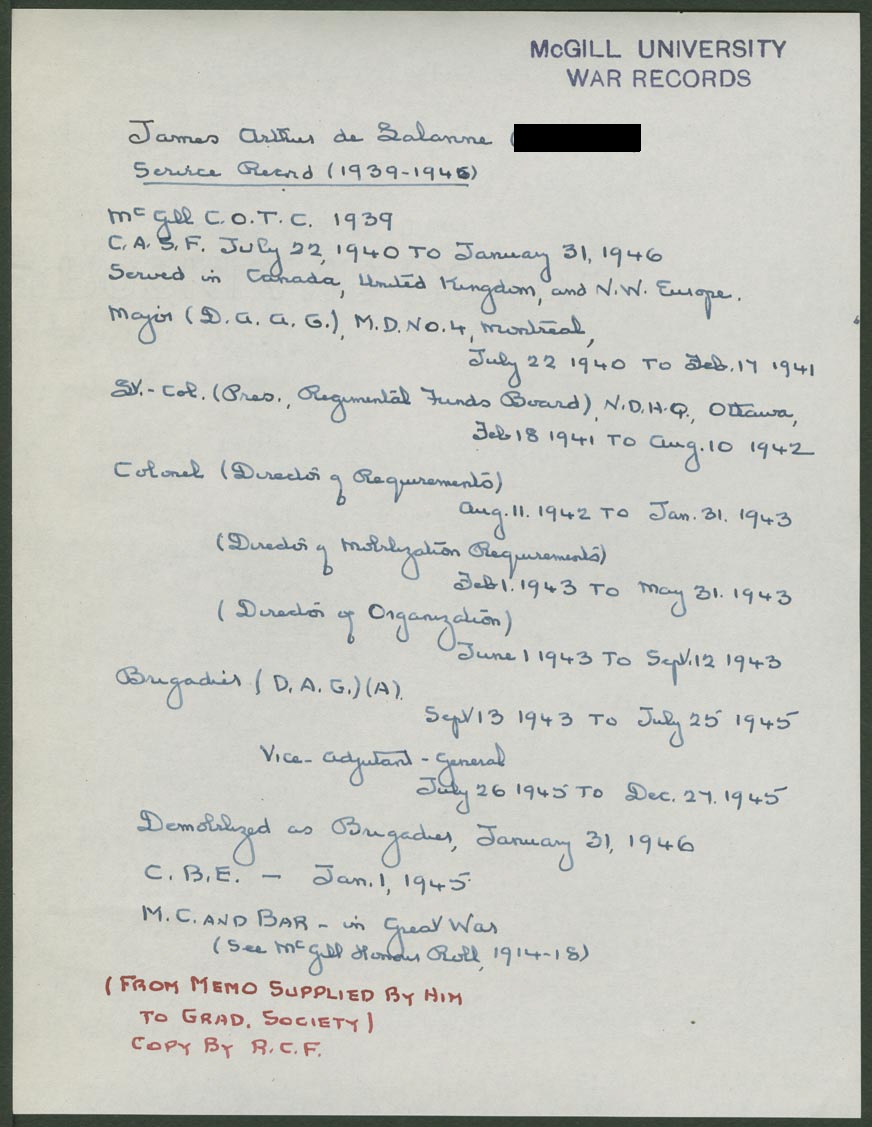 McGILL UNIVERSITY
WAR RECORDS
James Arthur de Lalanne (
Service Record (1939-1946)
McGill C.O.T.C. 1939
C.A.S.F. July 22, 1940 TO January 31, 1946
Served in Canada, United Kingdom, and N.W. Europe.
Major (D.A.A.G.), M.D. No. 4, Montreal,
July 22 1940 TO Feb. 17 1941
Lt.-Col. (Pres., Regimental Funds Board), N.D.H.Q., Ottawa,
Feb 18 1941 TO Aug. 10 1942
Colonel (Director of Requirements)
Aug. 11. 1942 TO Jan. 31. 1943
(Director of Mobilization Requirements)
Feb 1. 1943 TO May 31. 1943
(Director of Organization)
June 1 1943 TO Sept. 12 1943
Brigadier (D.A.G.)(A)
Sept 13 1943 TO July 25 1945
Vice-Adjutant-General
July 26 1945 TO Dec. 27. 1945
Demobilized as Brigadier, January 31, 1946
C.B.E. - Jan. 1, 1945
M.C. AND BAR - in Great War
(See McGill Honour Roll, 1914-18)
(FROM MEMO SUPPLIED BY HIM
TO GRAD. SOCIETY)
COPY BY R.C.F.